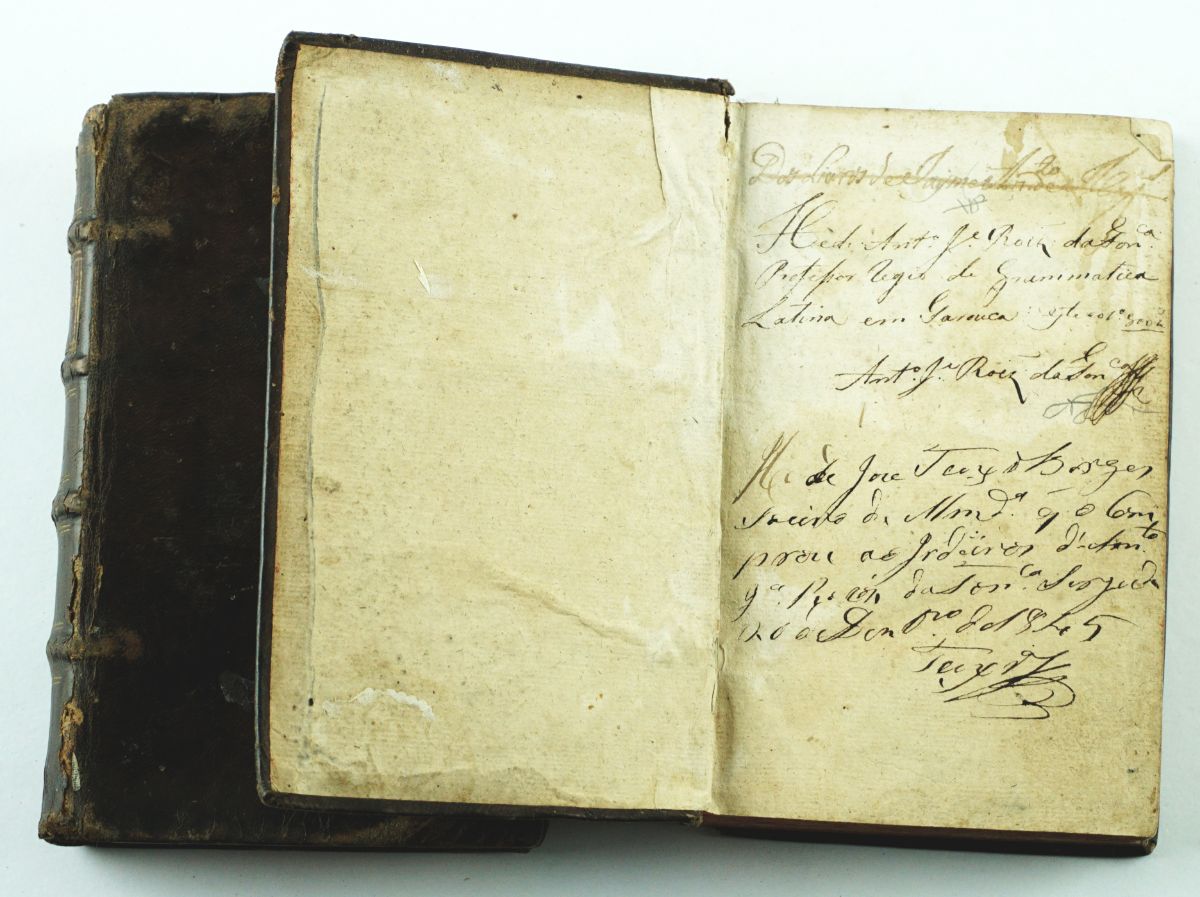 Dos Livros de Jayme
Hè de Antº Jº Roiz da Fonca.
Professor Regio de Grammatica
Latina em Tarouca
Antº Jº Roiz da Fonca
He de Jose Teixrª Borges
de Mmdª q̃ o Com
prou aos Irdeiros d'Anto
Roiz da Fonca
26 de Denbro de 1845
Teixrª